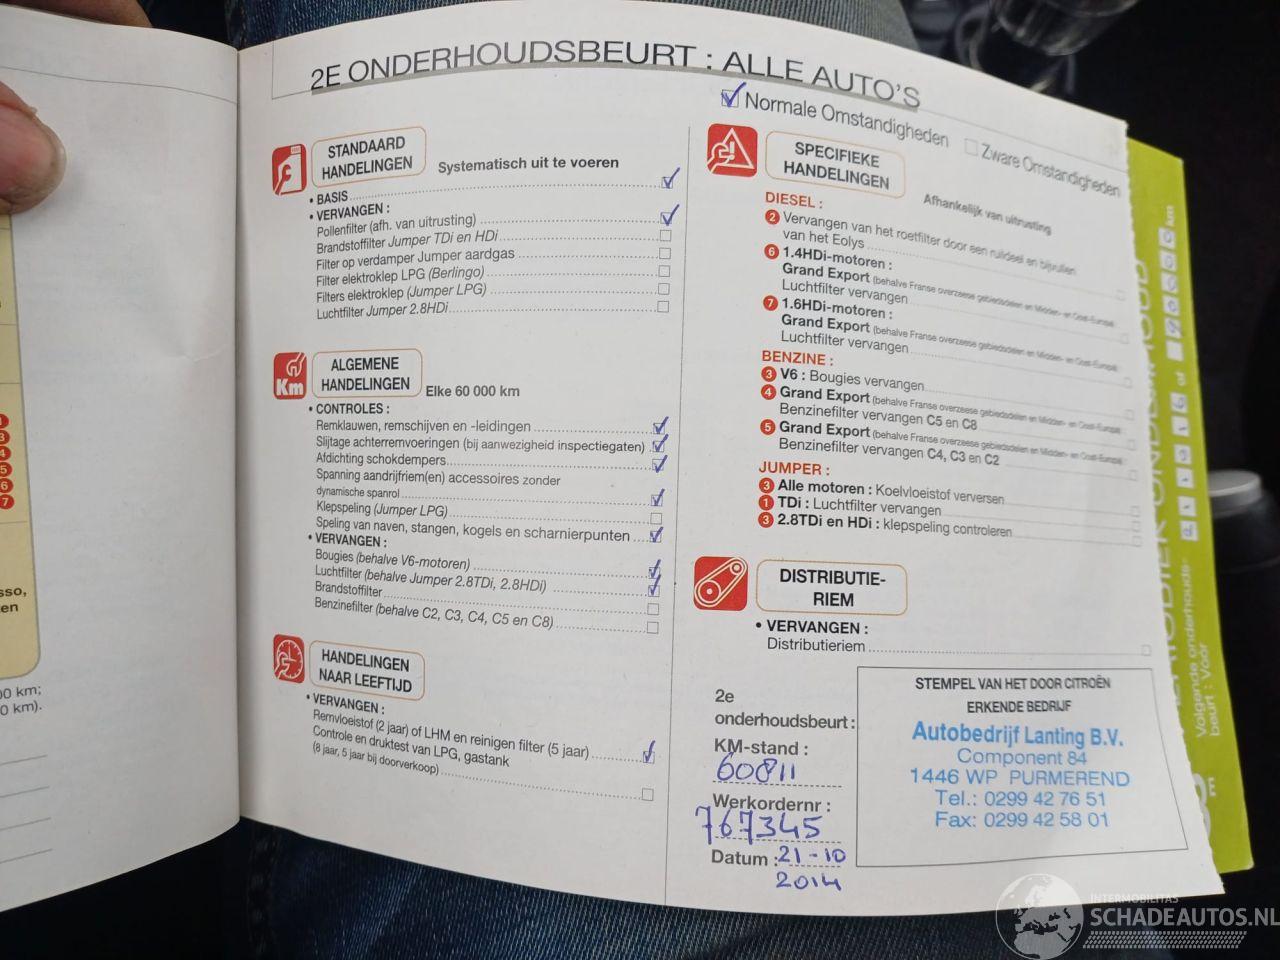 2E ONDERHOUDSBEURT : ALLE AUTO'S
Normale Omstandigheden
Zware Omstandigheden
STANDAARD
HANDELINGEN
Systematisch uit te voeren
• BASIS
• VERVANGEN :
Pollenfilter (afh. van uitrusting)
Brandstoffilter Jumper TDi en HDi
Filter op verdamper Jumper aardgas
Filter elektroklep LPG (Berlingo)
Filters elektroklep (Jumper LPG)
Luchtfilter Jumper 2.8HDi
Km
ALGEMENE
HANDELINGEN
Elke 60 000 km
• CONTROLES :
Remklauwen, remschijven en -leidingen
Slijtage achterremvoeringen (bij aanwezigheid inspectiegaten)
Afdichting schokdempers
Spanning aandrijfriem(en) accessoires zonder
dynamische spanrol
Klepspeling (Jumper LPG)
Speling van naven, stangen, kogels en scharnierpunten
• VERVANGEN :
Bougies (behalve V6-motoren)
Luchtfilter (behalve Jumper 2.8TDi, 2.8HDi)
Brandstoffilter
Benzinefilter (behalve C2, C3, C4, C5 en C8)
HANDELINGEN
NAAR LEEFTIJD
• VERVANGEN :
Remvloeistof (2 jaar) of LHM en reinigen filter (5 jaar)
Controle en druktest van LPG, gastank
(8 jaar, 5 jaar bij doorverkoop)
SPECIFIEKE
HANDELINGEN
Afhankelijk van uitrusting
DIESEL :
2 Vervangen van het roetfilter door een ruildeel en bijvullen
van het Eolys
6 1.4HDi-motoren :
Grand Export (behalve Franse overzeese gebiedsdelen en Midden- en Oost-Europa)
Luchtfilter vervangen
7 1.6HDi-motoren :
Grand Export (behalve Franse overzeese gebiedsdelen en Midden- en Oost-Europa)
Luchtfilter vervangen
BENZINE :
3 V6 : Bougies vervangen
4 Grand Export (behalve Franse overzeese gebiedsdelen en Midden- en Oost-Europa) :
Benzinefilter vervangen C5 en C8
5 Grand Export (behalve Franse overzeese gebiedsdelen en Midden- en Oost-Europa) :
Benzinefilter vervangen C4, C3 en C2
JUMPER :
3 Alle motoren : Koelvloeistof verversen
1 TDi : Luchtfilter vervangen
3 2.8TDi en HDi : klepspeling controleren
DISTRIBUTIE-
RIEM
• VERVANGEN :
Distributieriem
2e
onderhoudsbeurt :
KM-stand :
60811
Werkordernr :
767345
Datum : 21-10
2014
STEMPEL VAN HET DOOR CITROËN
ERKENDE BEDRIJF
Autobedrijf Lanting B.V.
Component 84
1446 WP PURMEREND
Tel.: 0299 42 76 51
Fax: 0299 42 58 01
Volgende onderhouds-
beurt : Vóór
of
km
sso,
ten
00 km;
0 km).
3
4
5
6
7
INTERMOBILITAS
SCHADEAUTOS.NL